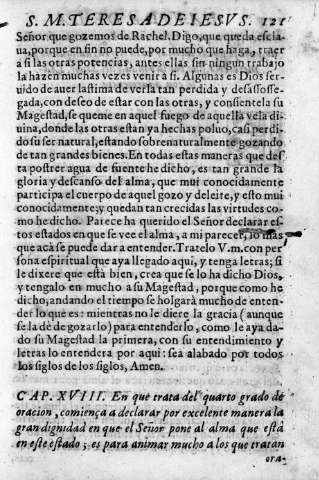 S. M. TERESA DE IESVS. 121
Señor que gozemos de Rachel. Digo, que queda escla
ua, porque en fin no puede, por mucho que haga, traer
a si las otras potencias, antes ellas sin ningun trabajo
la hazen muchas vezes venir a si. Algunas es Dios ser-
uido de auer lastima de verla tan perdida y desassosse-
gada, con deseo de estar con las otras, y consientela su
Magestad, se queme en aquel fuego de aquella vela di-
uina, donde las otras estan ya hechas poluo, casi perdi-
do su ser natural, estando sobrenaturalmente gozando
de tan grandes bienes. En todas estas maneras que des
ta postrer agua de fuente he dicho, es tan grande la
gloria y descanso del alma, que mui conocidamente
participa el cuerpo de aquel gozo y deleite, y esto mui
conocidamente; y quedan tan crecidas las virtudes co-
mo he dicho. Parece ha querido el Señor declarar es-
tos estados en que se vee el alma, a mi parecer, lo mas
que acà se puede dar a entender. Tratelo V.m. con per
sona espiritual que aya llegado aqui, y tenga letras; si
le dixere que està bien, crea que se lo ha dicho Dios,
y tengalo en mucho a su Magestad, porque como he
dicho, andando el tiempo se holgarà mucho de enten-
der lo que es: mientras no le diere la gracia (aunque
se la dè de gozarlo) para entenderlo, como le aya da-
do su Magestad la primera, con su entendimiento y
letras lo entendera por aqui: sea alabado por todos
los siglos de los siglos, Amen.
CAP. XVIII. En que trata del quarto grado de
oracion, comiença a declarar por excelente manera la
gran dignidad en que el Señor pone al alma que està
en este estado; es para animar mucho a los que tratan
ora-